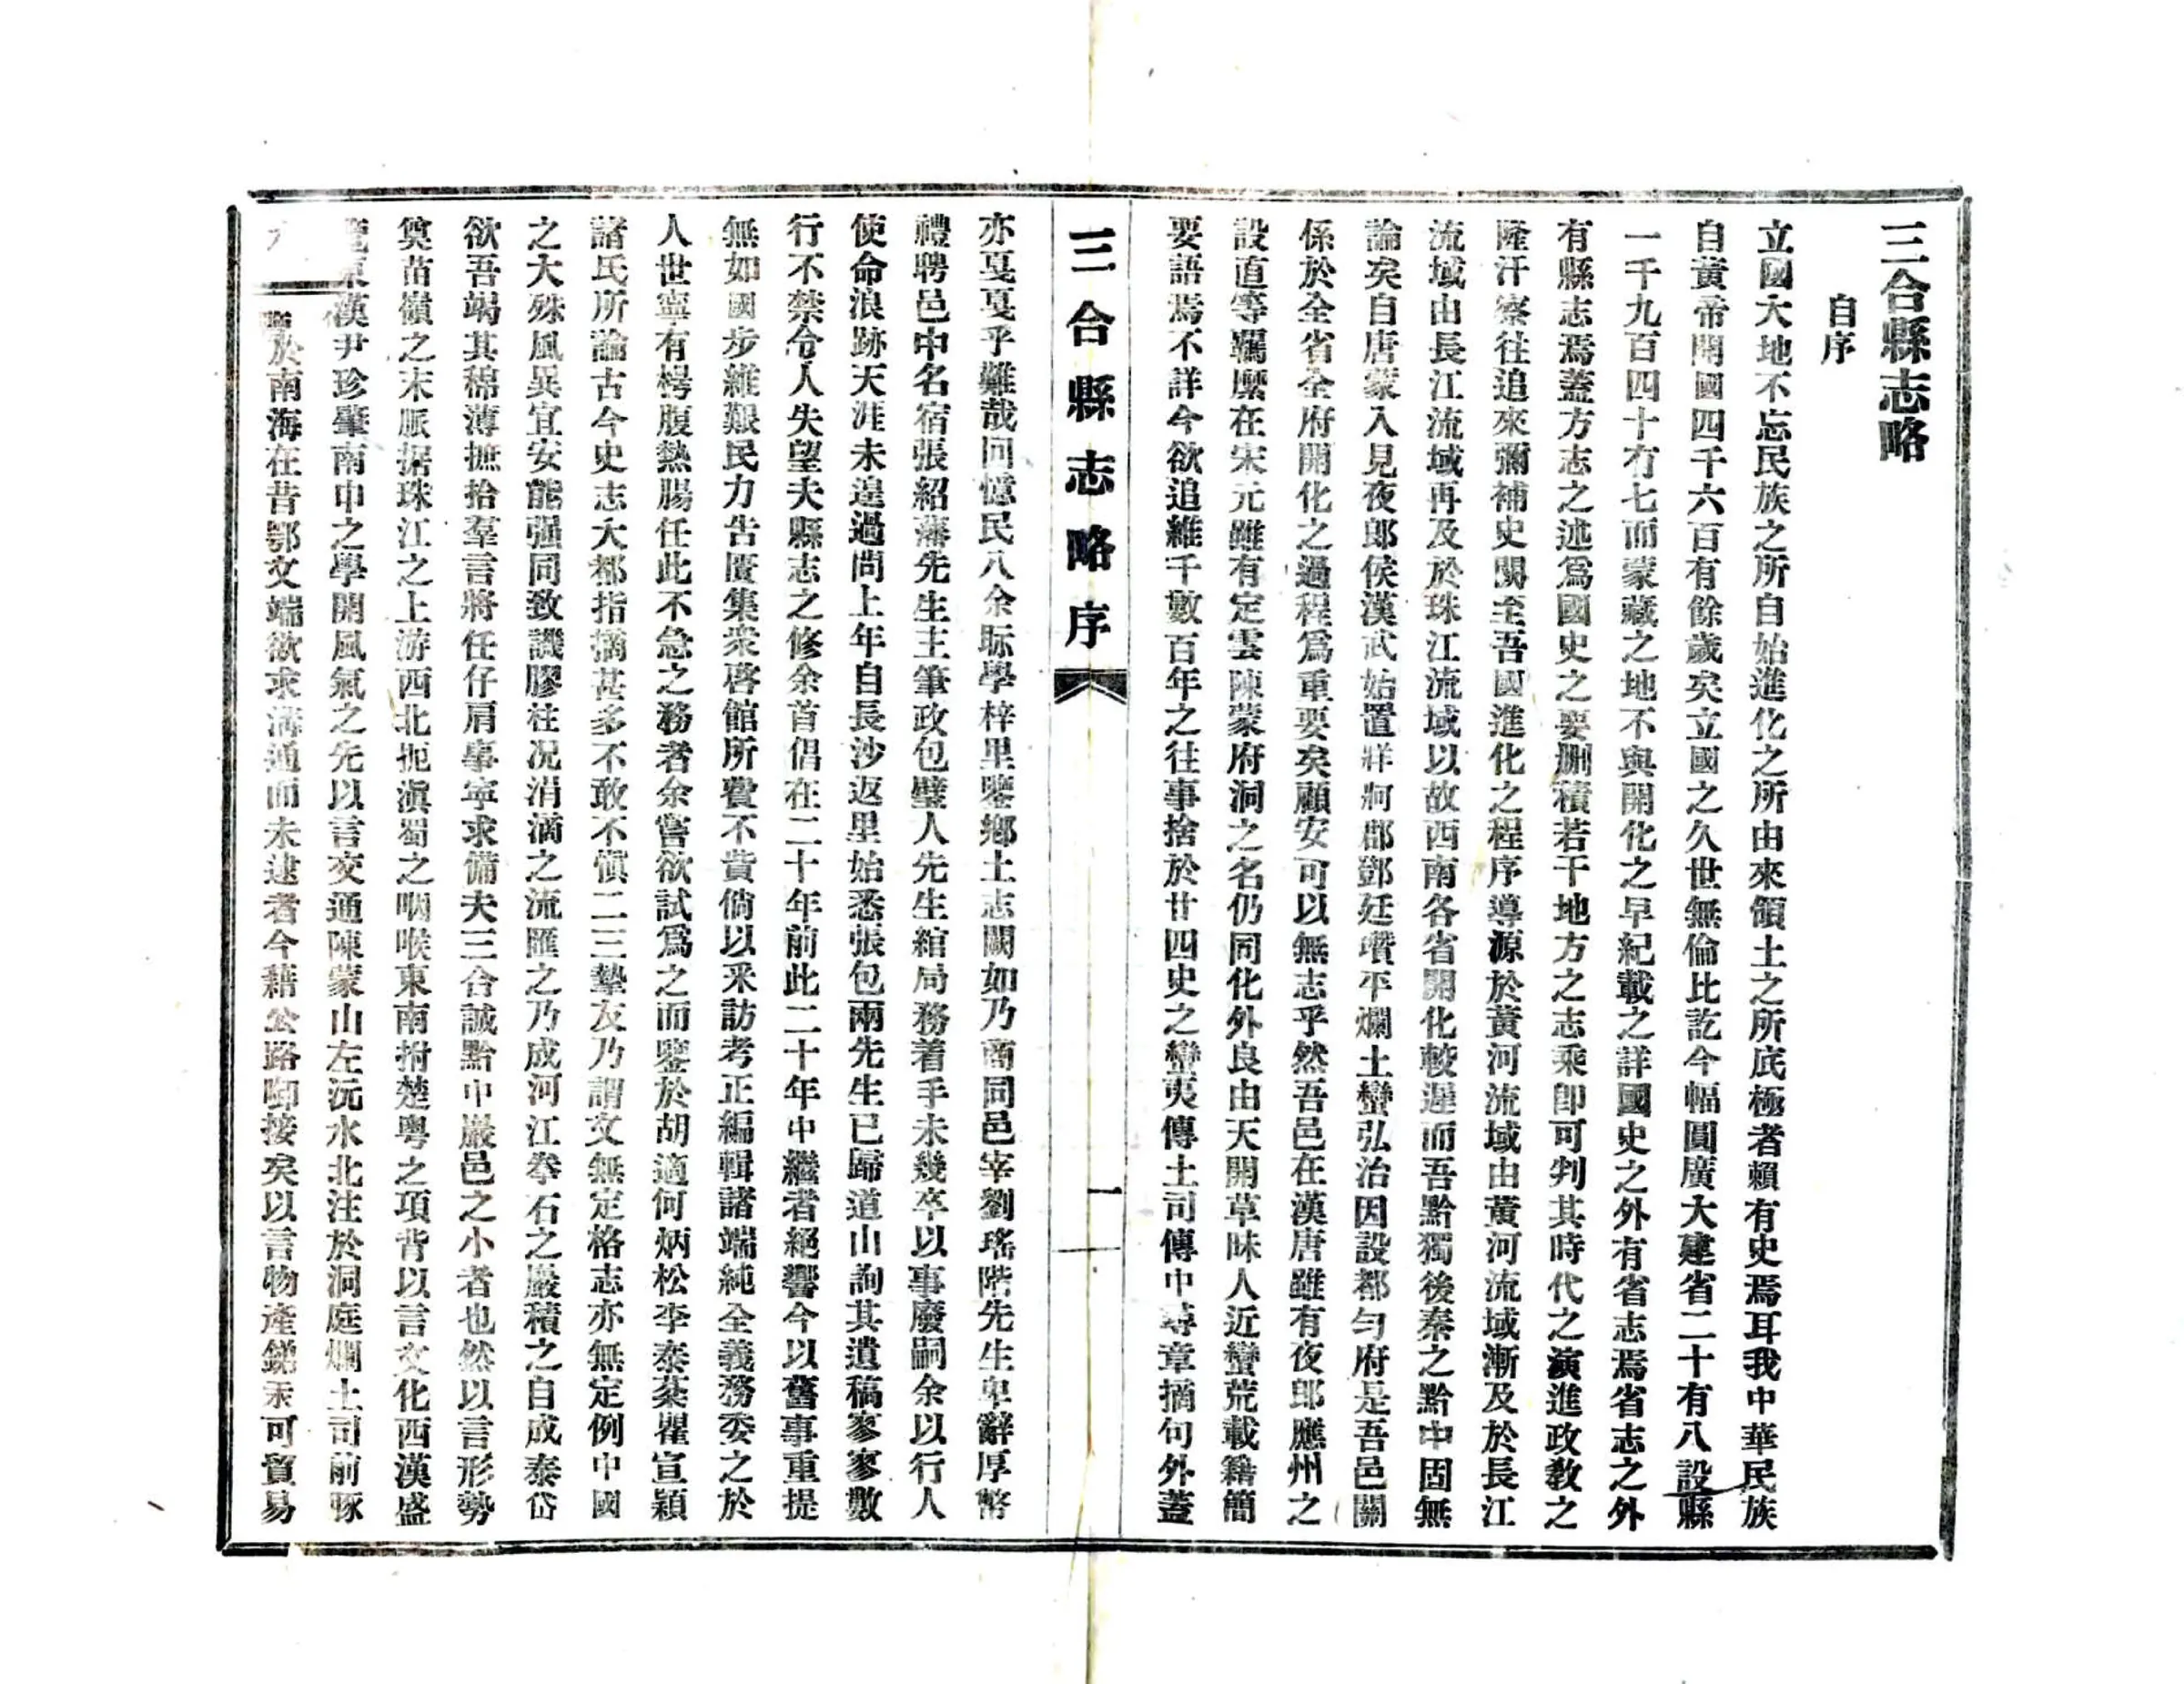 三合縣志略
自序
立國大地不忘民族之所自始進化之所由來領土之所底極者賴有史焉耳我中華民族
自黃帝開國四千六百有餘歲矣立國之久世無倫比訖今幅圓廣大建省二十有八設縣
一千九百四十有七而蒙藏之地不與開化之早紀載之詳國史之外有省志焉省志之外
有縣志焉蓋方志之述爲國史之要刪積若干地方之志乘卽可判其時代之演進政敎之
隆汙察往追來彌補史闕至吾國進化之程序導源於黃河流域由黃河流域漸及於長江
流域由長江流域再及於珠江流域以故西南各省開化較遲而吾黔獨後秦之黔中固無
論矣自唐蒙入見夜郎侯漢武始置牂牁郡鄧廷瓚平爛土蠻弘治因設都勻府是吾邑關
係於全省全府開化之過程爲重要矣顧安可以無志乎然吾邑在漢唐雖有夜郎應州之
設直等羈縻在宋元雖有定雲陳蒙府洞之名仍同化外良由天開草昧人近蠻荒載籍簡
要語焉不詳今欲追維千數百年之往事捨於廿四史之蠻夷傳土司傳中尋章摘句外蓋
三合縣志略序
一
亦戛戛乎難哉回憶民八余眎學梓里鑒鄉土志闕如乃商同邑宰劉瑤階先生卑辭厚幣
禮聘邑中名宿張紹藩先生主筆政包璧人先生綰局務着手未幾卒以事廢嗣余以行人
使命浪跡天涯未遑過問上年自長沙返里始悉張包兩先生已歸道山詢其遺稿寥寥數
行不禁令人失望夫縣志之修余首倡在二十年前此二十年中繼者絕響今以舊事重提
無如國步維艱民力告匱集衆啓館所費不貲倘以釆訪考正編輯諸端純全義務委之於
人世寧有枵腹熱腸任此不急之務者余嘗欲試爲之而鑒於胡適何炳松李泰棻瞿宣穎
諸氏所論古今史志大都指摘甚多不敢不愼二三摯友乃謂文無定格志亦無定例中國
之大殊風異宜安能强同致譏膠柱况涓滴之流匯之乃成河江拳石之巖積之自成泰岱
欲吾竭其棉薄摭拾羣言將任仔肩事寧求備夫三合誠黔中巖邑之小者也然以言形勢
奠苗嶺之末脈据珠江之上游西北扼滇蜀之咽喉東南拊楚粤之項背以言文化西漢盛
東漢尹珍肇南中之學開風氣之先以言交通陳蒙山左沅水北注於洞庭爛土司前豚
於南海在昔鄂文端欲求溝通而未逮者今藉公路啣接矣以言物產銻汞可貿易